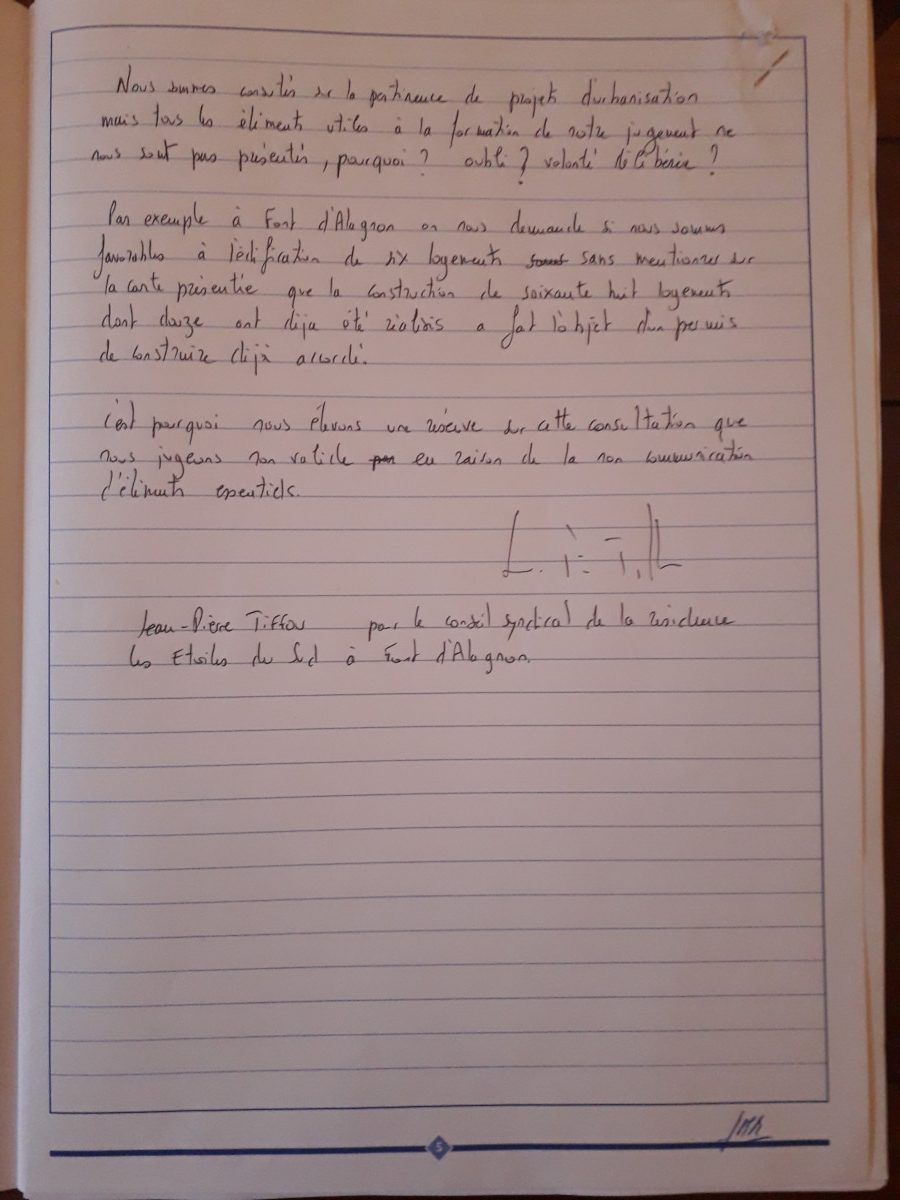 Nous sommes consultés sur la pertinence de projets d'urbanisation
mais tous les éléments utiles à la formation de notre jugement ne
nous sont pas présentés, pourquoi ? oubli ? volonté délibérée ?
Par exemple à Font d'Alagnon on nous demande si nous sommes
favorables à l'édification de six logements sans mentionner sur
la carte présentée que la construction de soixante huit logements
dont douze ont déjà été réalisés a fait l'objet d'un permis
de construire déjà accordé.
C'est pourquoi nous élevons une réserve sur cette consultation que
nous jugeons non valide en raison de la non communication
d'éléments essentiels.
Jean-Pierre Tiffou pour le conseil syndical de la résidence
les Etoiles du Sud à Font d'Alagnon.
5